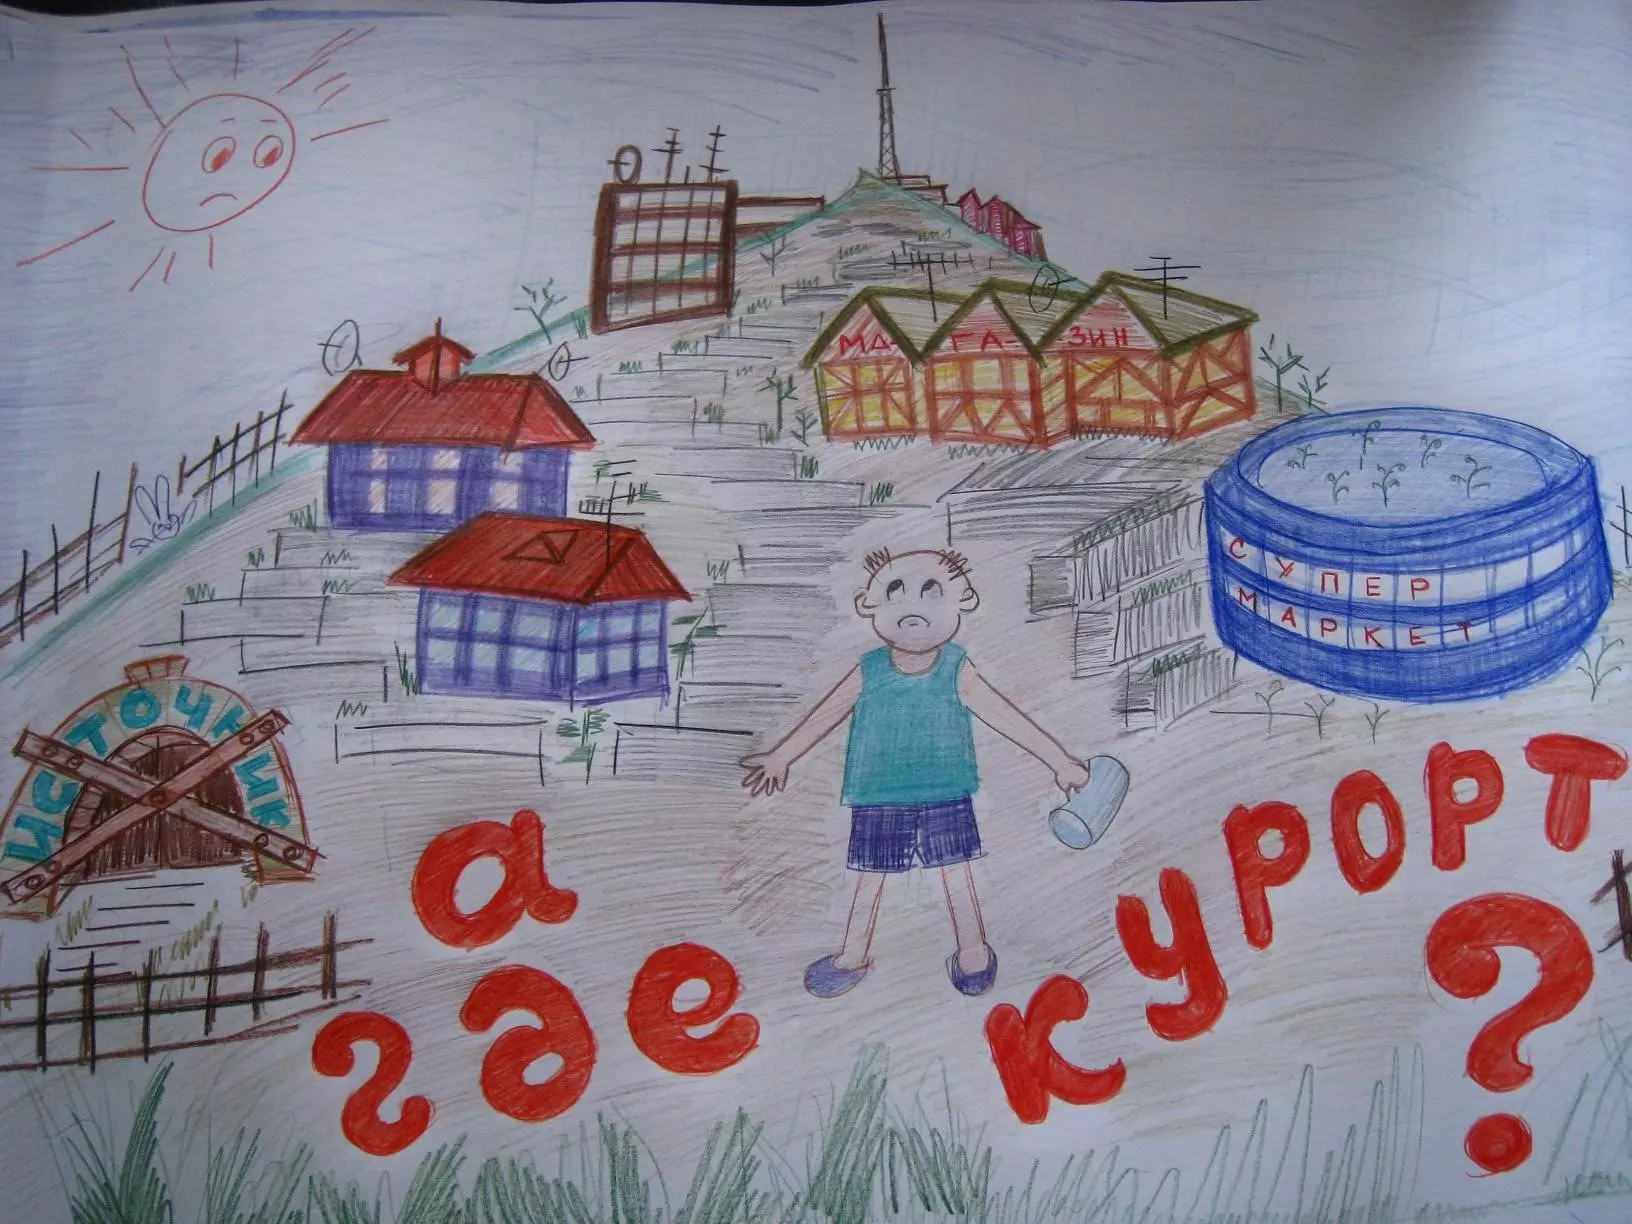 МА-ГА-ЗИН
СУПЕР
МАРКЕТ
ИСТОЧНИК
а
где
курорт?